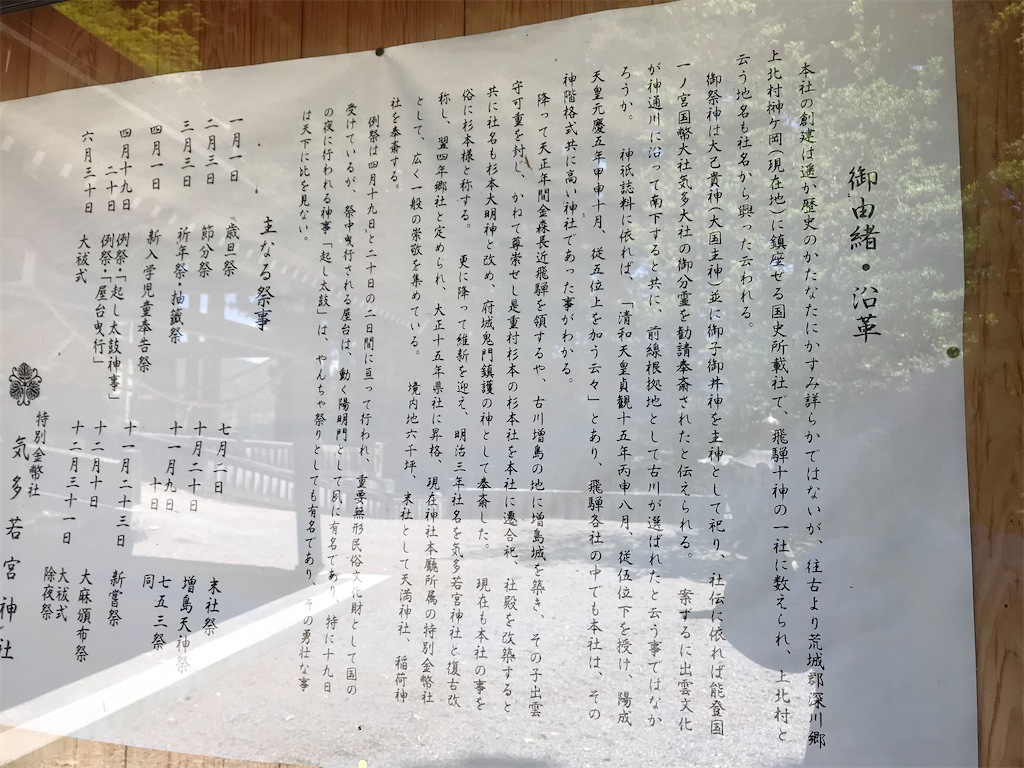 御由緒・沿革
本社の創建は遥か歴史のかたなたにかすみ詳らかではないが、往古より荒城郡深川郷
上北村榊ヶ岡(現在地)に鎮座せる国史所載社で、飛騨十神の一社に数えられ、上北村と
云う地名も社名から興った云われる。
御祭神は大己貴神(大国主神)並に御子御井神を主神として祀り、社伝に依れば能登国
一ノ宮国幣大社気多大社の御分霊を勧請奉斎されたと伝えられる。案ずるに出雲文化
が神通川に沿って南下すると共に、前線根拠地として古川が選ばれたと云う事ではなか
ろうか。 神祇誌料に依れば、「清和天皇貞観十五年丙申八月、従伍位下を授け、陽成
天皇元慶五年甲申十月、従五位上を加う云々」とあり、飛騨各社の中でも本社は、その
神階格式共に高い神社であった事がわかる。
降って天正年間金森長近飛騨を領するや、古川増島の地に増島城を築き、その子出雲
守可重を封し、かねて尊崇せし是重村杉本の杉本社を本社に遷合祀、社殿を改築すると
共に社名も杉本大明神と改め、府城鬼門鎮護の神として奉斎した。 現在も本社の事を
俗に杉本様と称する。 更に降って維新を迎え、明治三年社名を気多若宮神社と復古改
称し、翌四年郷社と定められ、大正十五年県社に昇格、現在神社本廳所属の特別金幣社
として、広く一般の崇敬を集めている。 境内地六千坪、末社として天満神社、稲荷神
社を奉斎する。
例祭は四月十九日と二十日の二日間に亘って行われ、重要無形民俗文化財として国の
受けているが、祭中曳行される屋台は、動く陽明門として夙に有名であり、特に十九日
の夜に行われる神事「起し太鼓」は、やんちゃ祭りとしても有名であり、その勇壮な事
は天下に比を見ない。
主なる祭事
一月一日 歳旦祭
二月三日 節分祭
三月三日 祈年祭・抽籤祭
四月一日 新入学児童奉告祭
四月十九日 例祭・「起し太鼓神事」
二十日 例祭・「屋台曳行」
六月三十日 大祓式
七月二日 末社祭
十月二十日 増島天神祭
十一月九日 七五三祭
十日 同
十一月二十三日 新嘗祭
十二月十日 大麻頒布祭
十二月三十一日 大祓式
除夜祭
特別金幣社
気多若宮神社